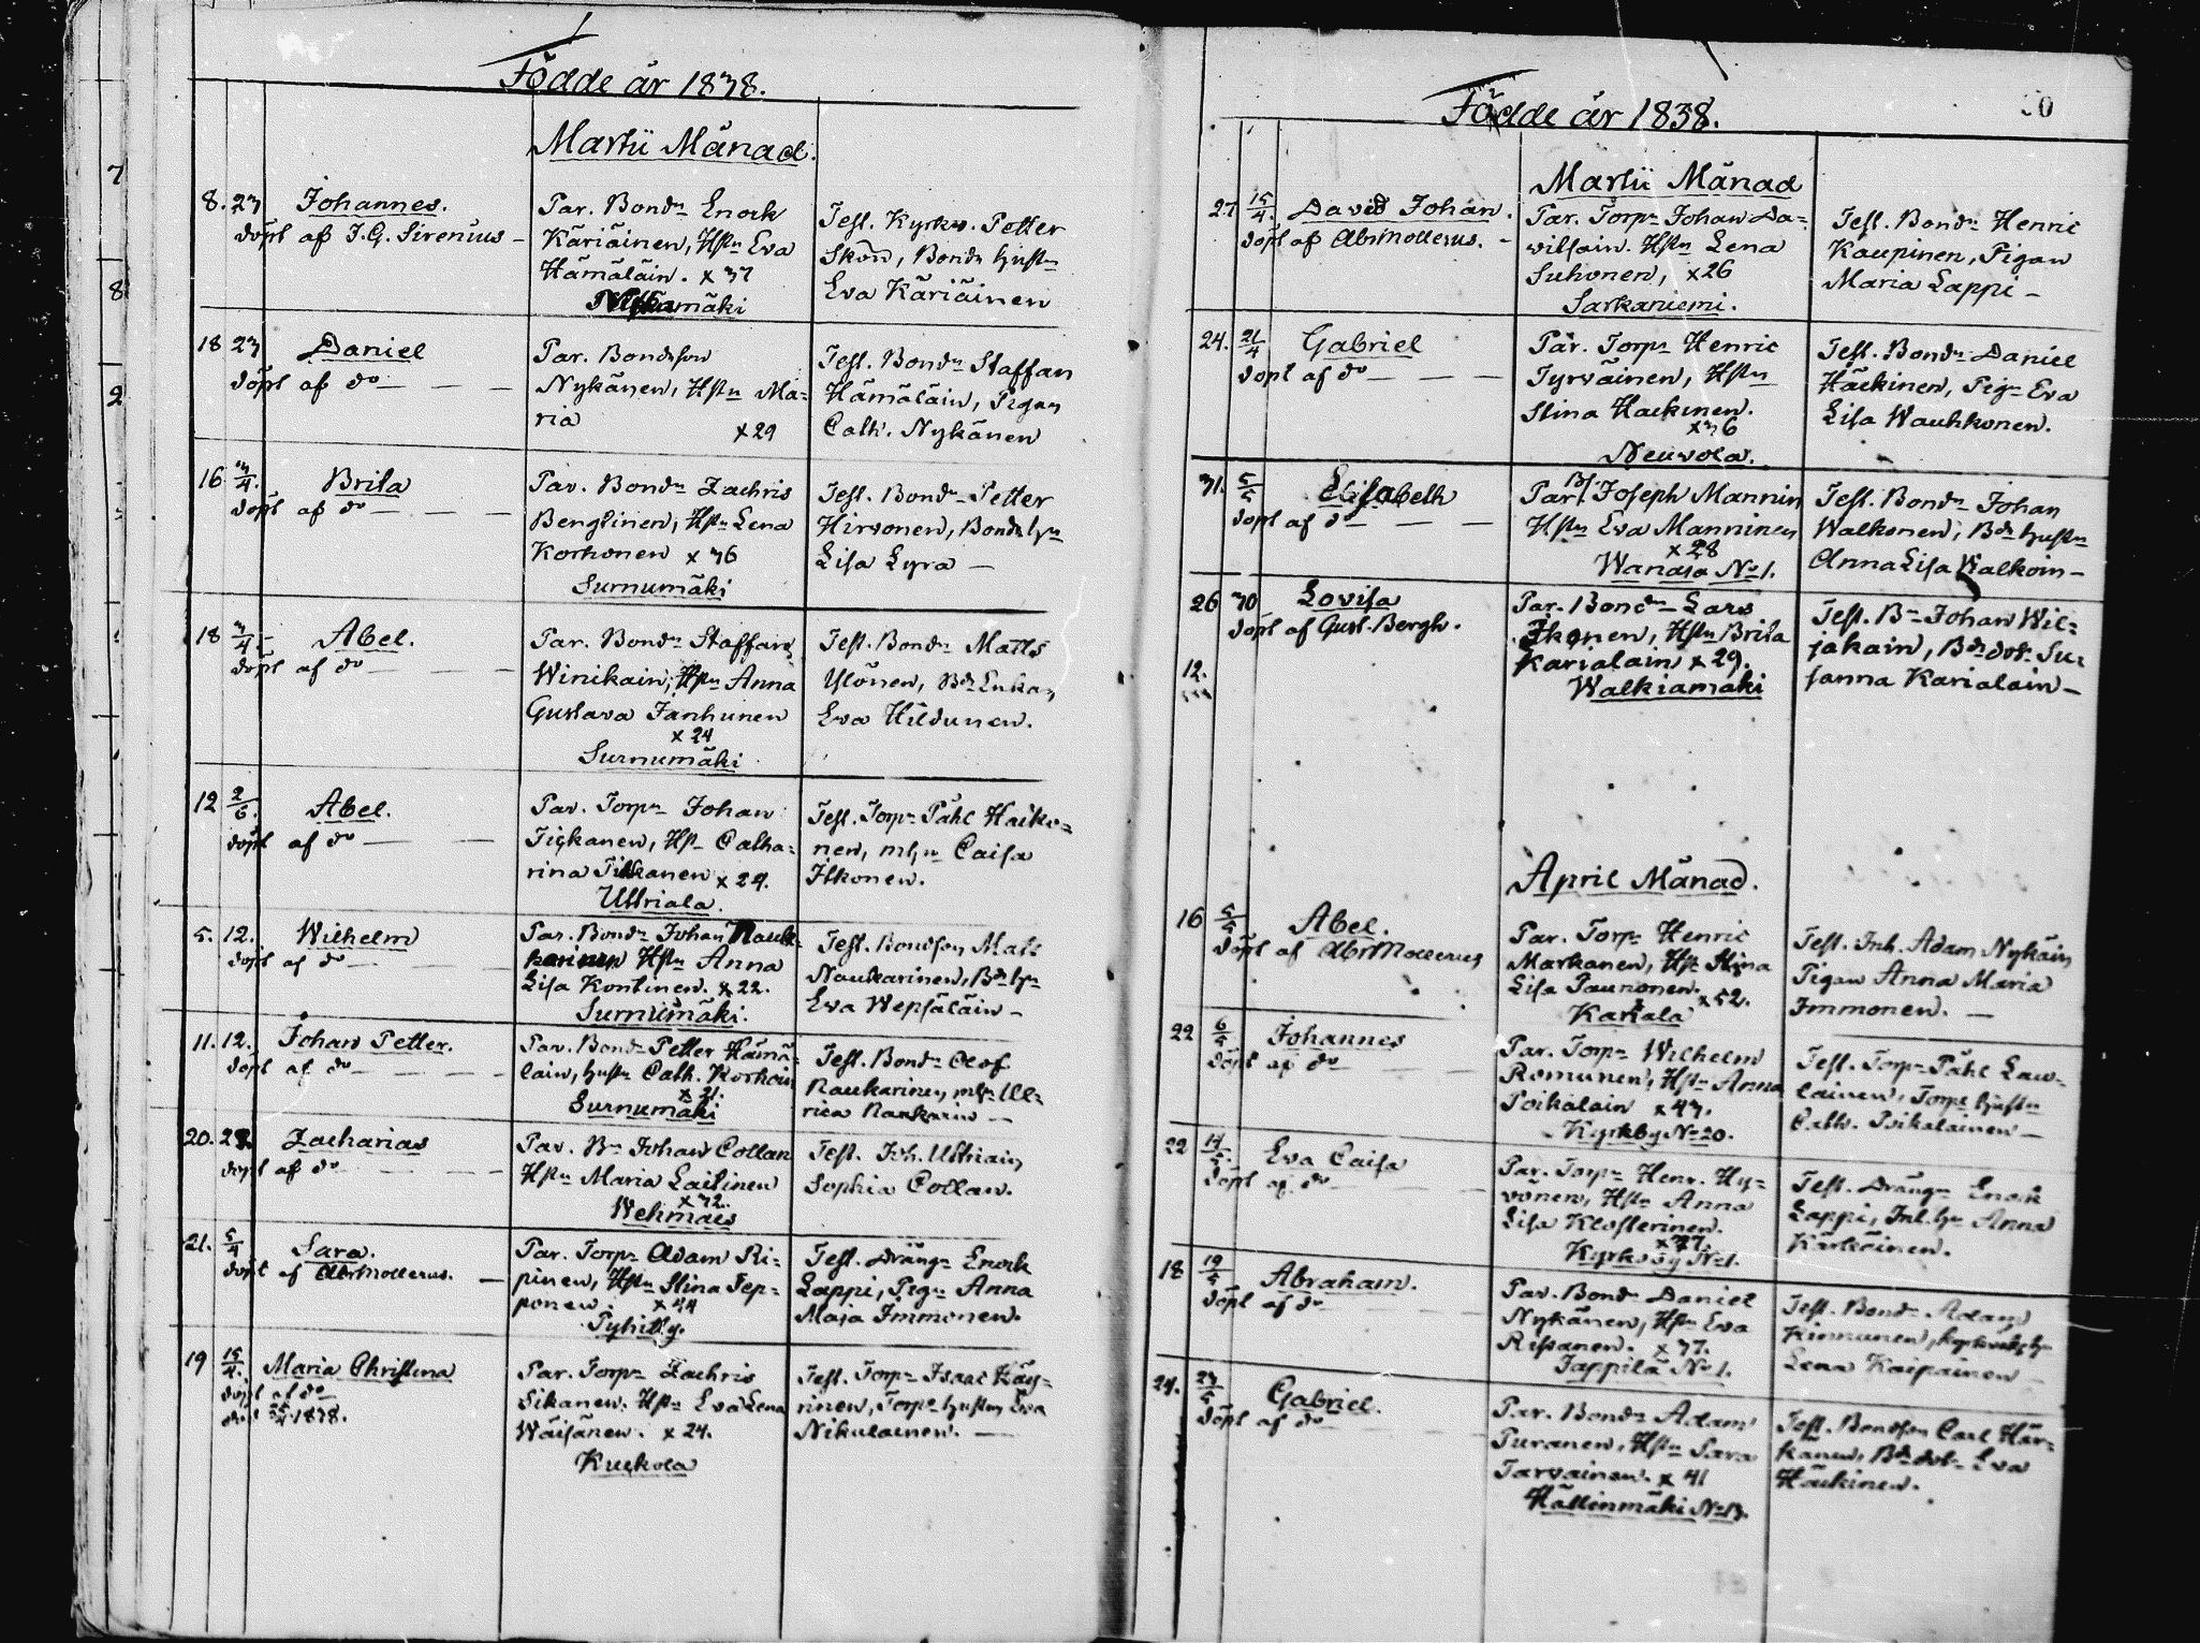 Födde år 1838.
Martii Månad.
7
8
9
8. 23 Johannes.
döpt af J. G. Sirenius -
Par. Bondn Enock
Käriäinen, Hstn Eva
Hämäläin. x 37
mäki
Test. Kyrkv. Petter
Skön, Bonde hustn
Eva Käriäinen
18 23 Daniel
döpt af do
Par. Bondeson
Nykänen, Hstn Ma=
ria x 29
Test. Bondn Staffan
Hämäläin, Pigan
Cath. Nykänen
16 3/4. Brita
döpt af do
Par. Bondn Zachris
Bengtinen, Hstn Lena
Korhonen x 36
Surnumäki
Test. Bondn Petter
Hirvonen, Bonde hn
Lisa Lyra -
18 3/4. Abel.
döpt af do
Par. Bondn Staffan
Winikain, Hstn Anna
Gustava Janhunen
x 24
Surnumäki
Test. Bondn Matts
Ylönen, Bde Enkan
Eva Hildunen.
12 2/6. Abel.
döpt af do
Par. Torpn Johan
Tickanen, Hst Catha=
rina Tikkanen x 24.
Uttriala.
Test. Torpn Påhl Haiko=
nen, mhn Caisa
Itkonen.
5. 12. Wilhelm
döpt af do
Par. Bondn Johan Nauk=
karinen Hstn Anna
Lisa Kontinen. x 22.
Surnumäki.
Test. Bondson Mats
Naukarinen, Bde hn
Eva Wepsäläin -
11. 12. Johan Petter.
döpt af do
Par. Bondn Petter Hämä=
läin, hustn Cath. Korhoin
x 21.
Surnumäki
Test. Bondn Olof
Naukarinen, mhn Ul=
rica Naukarin -
20. 28. Zacharias
döpt af do
Par. Bn Johan Collan
Hstn Maria Laitinen
x 32.
Wehmais
Test. Joh. Uttriain
Sophia Collan.
21. 5/4 Sara.
döpt af Abr Mollerus. -
Par. Torpn Adam Ri=
pinen, Hstn Stina Tep=
ponen. x 44
Pyhitty.
Test. Drängn Enock
Lappi, Pign Anna
Maja Immonen.
19 15/4. Maria Christina
döpt af do
1838.
Par. Torpn Zachris
Sikanen. Hstn Eva Lena
Wäisänen. x 24.
Kuckola
Test. Torpn Isaac Käy=
nnen, Torpe hustn Eva
Nikulainen. -
Födde år 1838.
50
Martii Månad
27 15/4. David Johan.
döpt af Abr Mollerus. -
Par. Torpn Johan Da=
vitsain. Hstn Lena
Suhonen, x 26
Sarkaniemi.
Test. Bondn Henric
Kaupinen, Pigan
Maria Lappi -
24. 21/4 Gabriel
döpt af do
Par. Torpn Henric
Tyrväinen, Hstn
Stina Hackinen.
x 36
Neuvola.
Test. Bondn Daniel
Häckinen, Pign Eva
Lisa Wauhkonen.
31. 5/5 Elisabeth
döpt af do
Par. Bn Joseph Mannin
Hstn Eva Manninen
x 28
Wanaja No 1.
Test. Bondn Johan
Walkonen, Bde hustn
Anna Lisa Walkoin -
26 30 Lovisa
döpt af Gust. Bergh.
12.
Par. Bondn Lars
Ikonen, Hstn Brita
Karialain x 29.
Walkiamäki
Test. Bn Johan Wil=
jakain, Bde dotr Su=
sanna Karialain -
April Månad.
16 5/5 Abel.
döpt af Abr Mollerus
Par. Torpn Henric
Markanen, Hst Stina
Lisa Paunonen. x 52.
Kariala
Test. Inh. Adam Nykäin
Pigan Anna Maria
Immonen. -
22 6/5 Johannes
döpt af do
Par. Torpn Wilhelm
Romunen, Hstn Anna
Poikalain x 43.
Kyrkby No 20.
Test. Torpn Påhl Law=
lainen, Torpe hustn
Cath. Poikalainen -
22 14/5. Eva Caisa
döpt af do
Par. Torpn Henr. Hy=
vönen, Hstn Anna
Lisa Klosterinen.
x 37.
Kyrkby No 1.
Test. Drängn Enock
Lappi, Inh. hn Anna
Kärkäinen.
18 19/5 Abraham.
döpt af do
Par. Bondn Daniel
Nykänen, Hstn Eva
Rissanen. x 37.
Jappilä No 1.
Test. Bondn Adam
Kinnunen, kyrkvakts hn
Lena Kaipainen
24. 23/5 Gabriel.
döpt af do
Par. Bondn Adam
Puranen, Hstn Sara
Tarvainen. x 41
Hällinmäki No 13.
Test. Bondson Carl Här=
kanen, Bde dotr Eva
Häckinen.